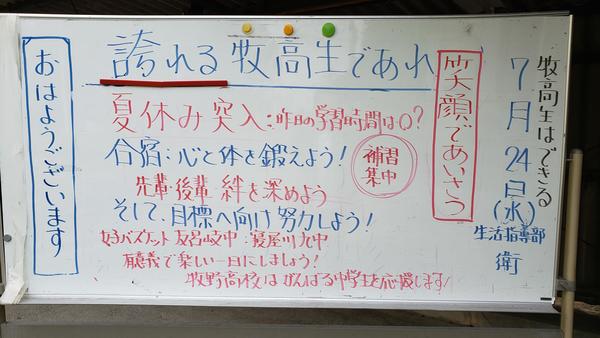 誇れる牧高生であれ
牧高生はできる
7月24日(水)
生活指導部
衛
笑顔であいさつ
おはようございます
夏休み突入:昨日の学習時間は0?
合宿:心と体を鍛えよう!
補習
集中
先輩・後輩 絆を深めよう
そして、目標へ向け努力しよう!
女子バスケット 友呂岐中・寝屋川九中
有意義で楽しい一日にしましょう!
牧野高校はがんばる中学生を応援します!